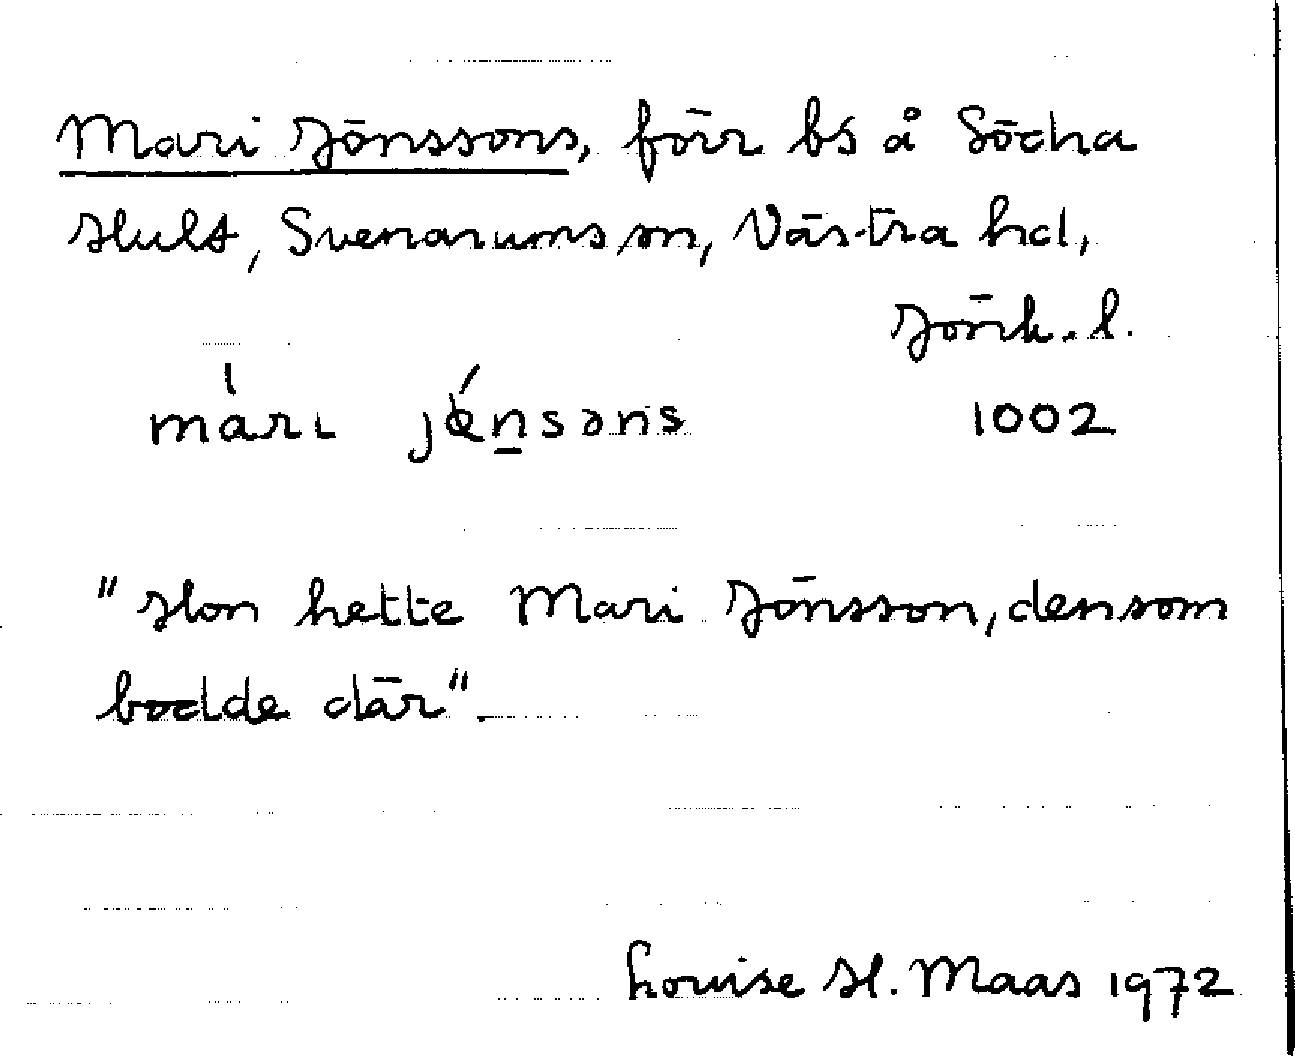 Mari Jönssons, förr bs å Södra
Hult, Svenarums sn, Västra hd,
Jönk. l.
mári jǿn̠səns 1002
"Hon hette Mari Jönsson, den som
bodde där".
Louise H. Maas 1972